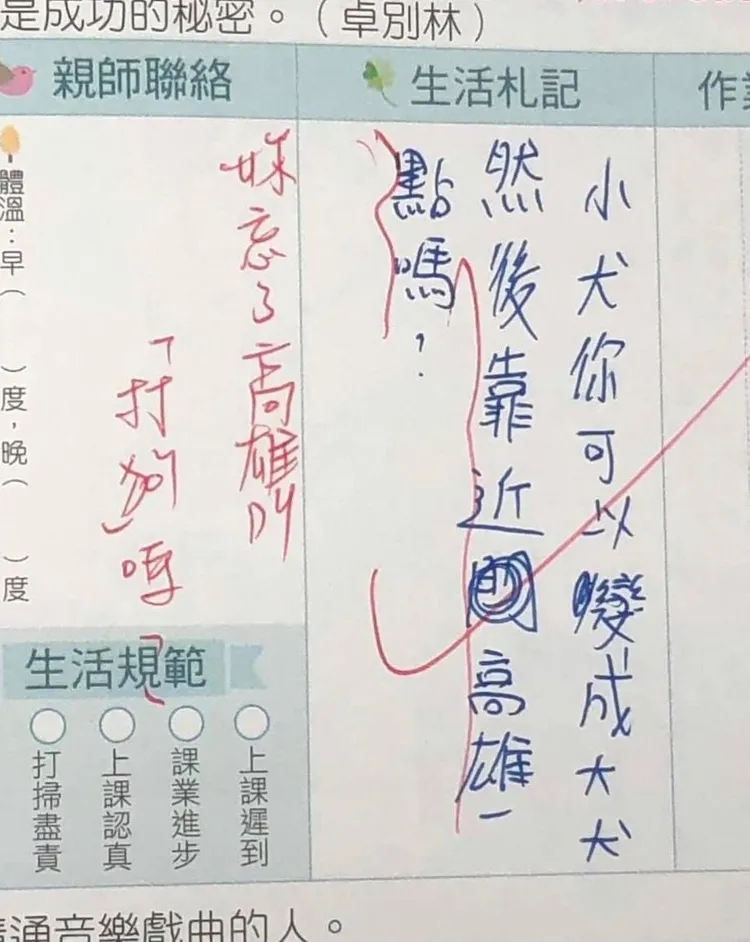 是成功的秘密。（卓別林）
親師聯絡
生活札記
作業
小犬你可以變成大犬
然後靠近高雄一
點嗎？
妹忘了高雄叫
「打狗」嗎
體溫：早（　）度，晚（　）度
生活規範
上課遲到
課業進步
上課認真
打掃盡責
通音樂戲曲的人。